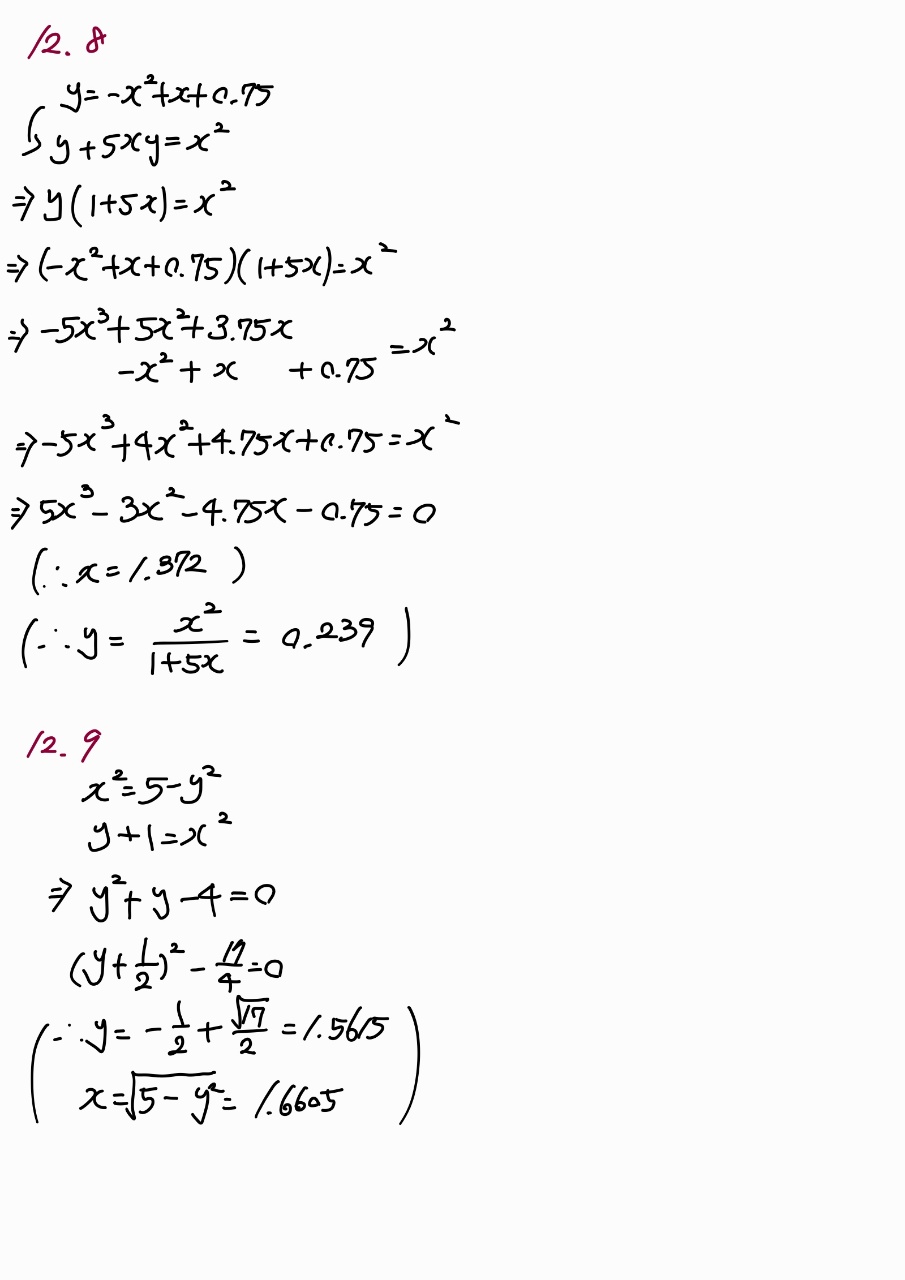 12. 8
y = -x²+x+0.75
y+5xy = x²
⇒ y(1+5x) = x²
⇒ (-x²+x+0.75)(1+5x) = x²
⇒ -5x³+5x²+3.75x
-x²+x +0.75 = x²
⇒ -5x³+4x²+4.75x+0.75 = x²
⇒ 5x³-3x²-4.75x-0.75 = 0
(∴ x = 1.372 )
(∴ y = x²/(1+5x) = 0.239 )
12. 9
x² = 5-y²
y+1 = x²
⇒ y²+y-4 = 0
(y+1/2)² - 17/4 = 0
(∴ y = -1/2 + √17/2 = 1.5615
x = √(5-y²) = 1.6605 )